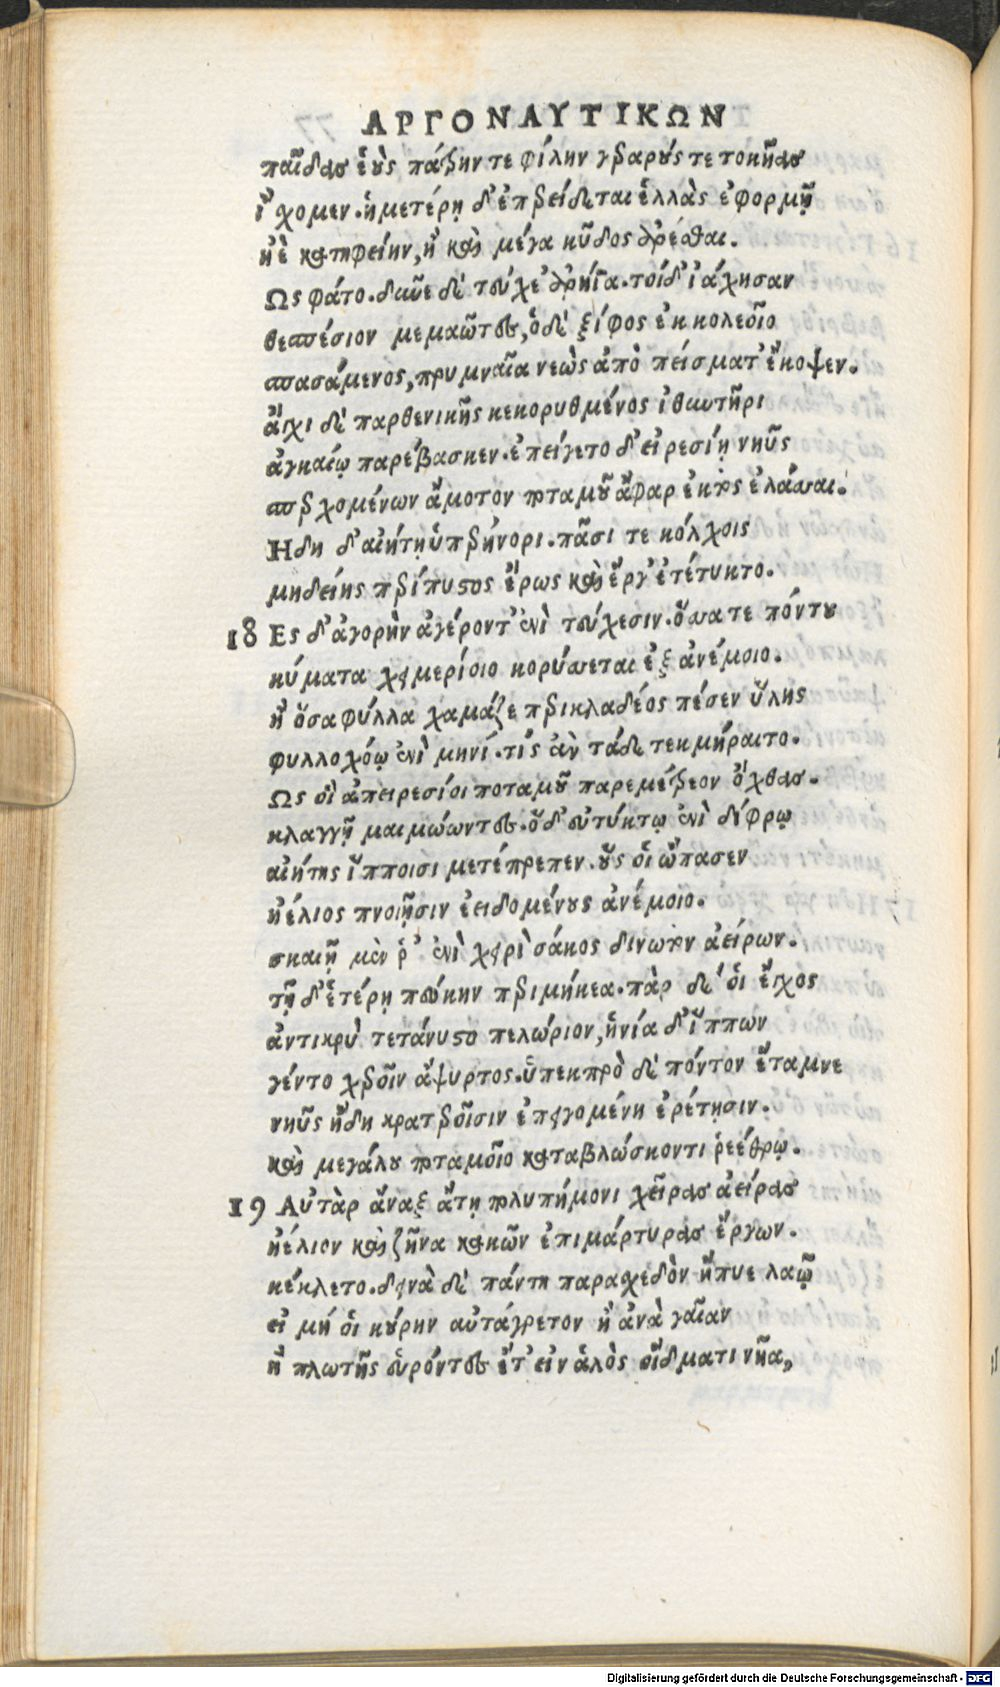 ΑΡΓΟΝΑΥΤΙΚΩΝ
παῖδας ἑοὺς πάτρην τε φίλην γεραρούς τε τοκῆας
ἴχομεν. ἡμετέρῃ δ' ἐπερείδεται ἑλλὰς ἐφορμῇ
ἠὲ κατηφείην, ἢ καὶ μέγα κῦδος ἀρέσθαι.
Ως φάτο. δῦνε δὲ τεύχε' ἀρήϊα. τοὶ δ' ἰάχησαν
θεσπέσιον μεμαῶτες, ὁ δὲ ξίφος ἐκ κολεοῖο
σπασάμενος, πρυμναῖα νεὼς ἀπὸ πείσματ' ἔκοψεν.
ἄγχι δὲ παρθενικῆς κεκορυθμένος ἰθυντῆρι
ἀγκαίῳ παρέβασκεν. ἐπείγετο δ' εἰρεσίῃ νηῦς
σπερχομένων ἄμοτον ποταμοῦ ἄφαρ ἐκτὸς ἐλάσσαι.
Ηδη δ' αἰήτῃ ὑπερήνορι. πᾶσί τε κόλχοις
μηδείης περίπυστος ἔρως καὶ ἔργ' ἐτέτυκτο.
18 Ες δ' ἀγορὴν ἀγέροντ' ἐνὶ τεύχεσιν. ὅσσα τε πόντου
κύματα χειμερίοιο κορύσσεται ἐξ ἀνέμοιο.
ἢ ὅσα φύλλα χαμάζε περικλαδέος πέσεν ὕλης
φυλλοχόῳ ἐνὶ μηνί. τίς ἂν τάδε τεκμήραιτο.
Ως οἳ ἀπειρεσίοι ποταμοῦ παρεμέτρεον ὄχθας.
κλαγγῇ μαιμώωντες. ὅδ' εὐτύκτῳ ἐνὶ δίφρῳ
αἰήτης ἵπποισι μετέπρεπεν. οὓς οἱ ὤπασεν
ἠέλιος πνοιῇσιν ἐειδομένους ἀνέμοιο.
σκαιῇ μέν ῥ' ἐνὶ χειρὶ σάκος δινωτὸν ἀείρων.
τῇ δ' ἑτέρῃ πεύκην περιμήκεα. πὰρ δέ οἱ ἔγχος
ἀντικρὺ τετάνυστο πελώριον, ἡνία δ' ἵππων
γέντο χεροῖν ἄψυρτος. ὑπεκπρὸ δὲ πόντον ἔταμνε
νηῦς ἤδη κρατεροῖσιν ἐπειγομένη ἐρέτῃσιν.
καὶ μεγάλου ποταμοῖο καταβλώσκοντι ῥεέθρῳ.
19 Αὐτὰρ ἄναξ ἄτῃ πολυπήμονι χεῖρας ἀείρας
ἠέλιον καὶ ζῆνα κακῶν ἐπιμάρτυρας ἔργων.
κέκλετο. δεινὰ δὲ πάντη παρασχεδὸν ἤπυε λαῷ
εἰ μή οἱ κούρην αὐτάγρετον ἢ ἀνὰ γαῖαν
ἢ πλωτῆς εὑρόντες ἔτ' εἰν ἁλὸς οἴδματι νῆα,
Digitalisierung gefördert durch die Deutsche Forschungsgemeinschaft - DFG